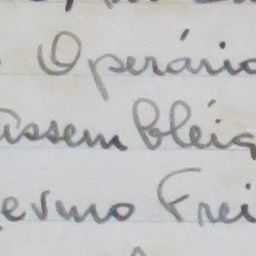 Operário
Assembléia
ermo Frei